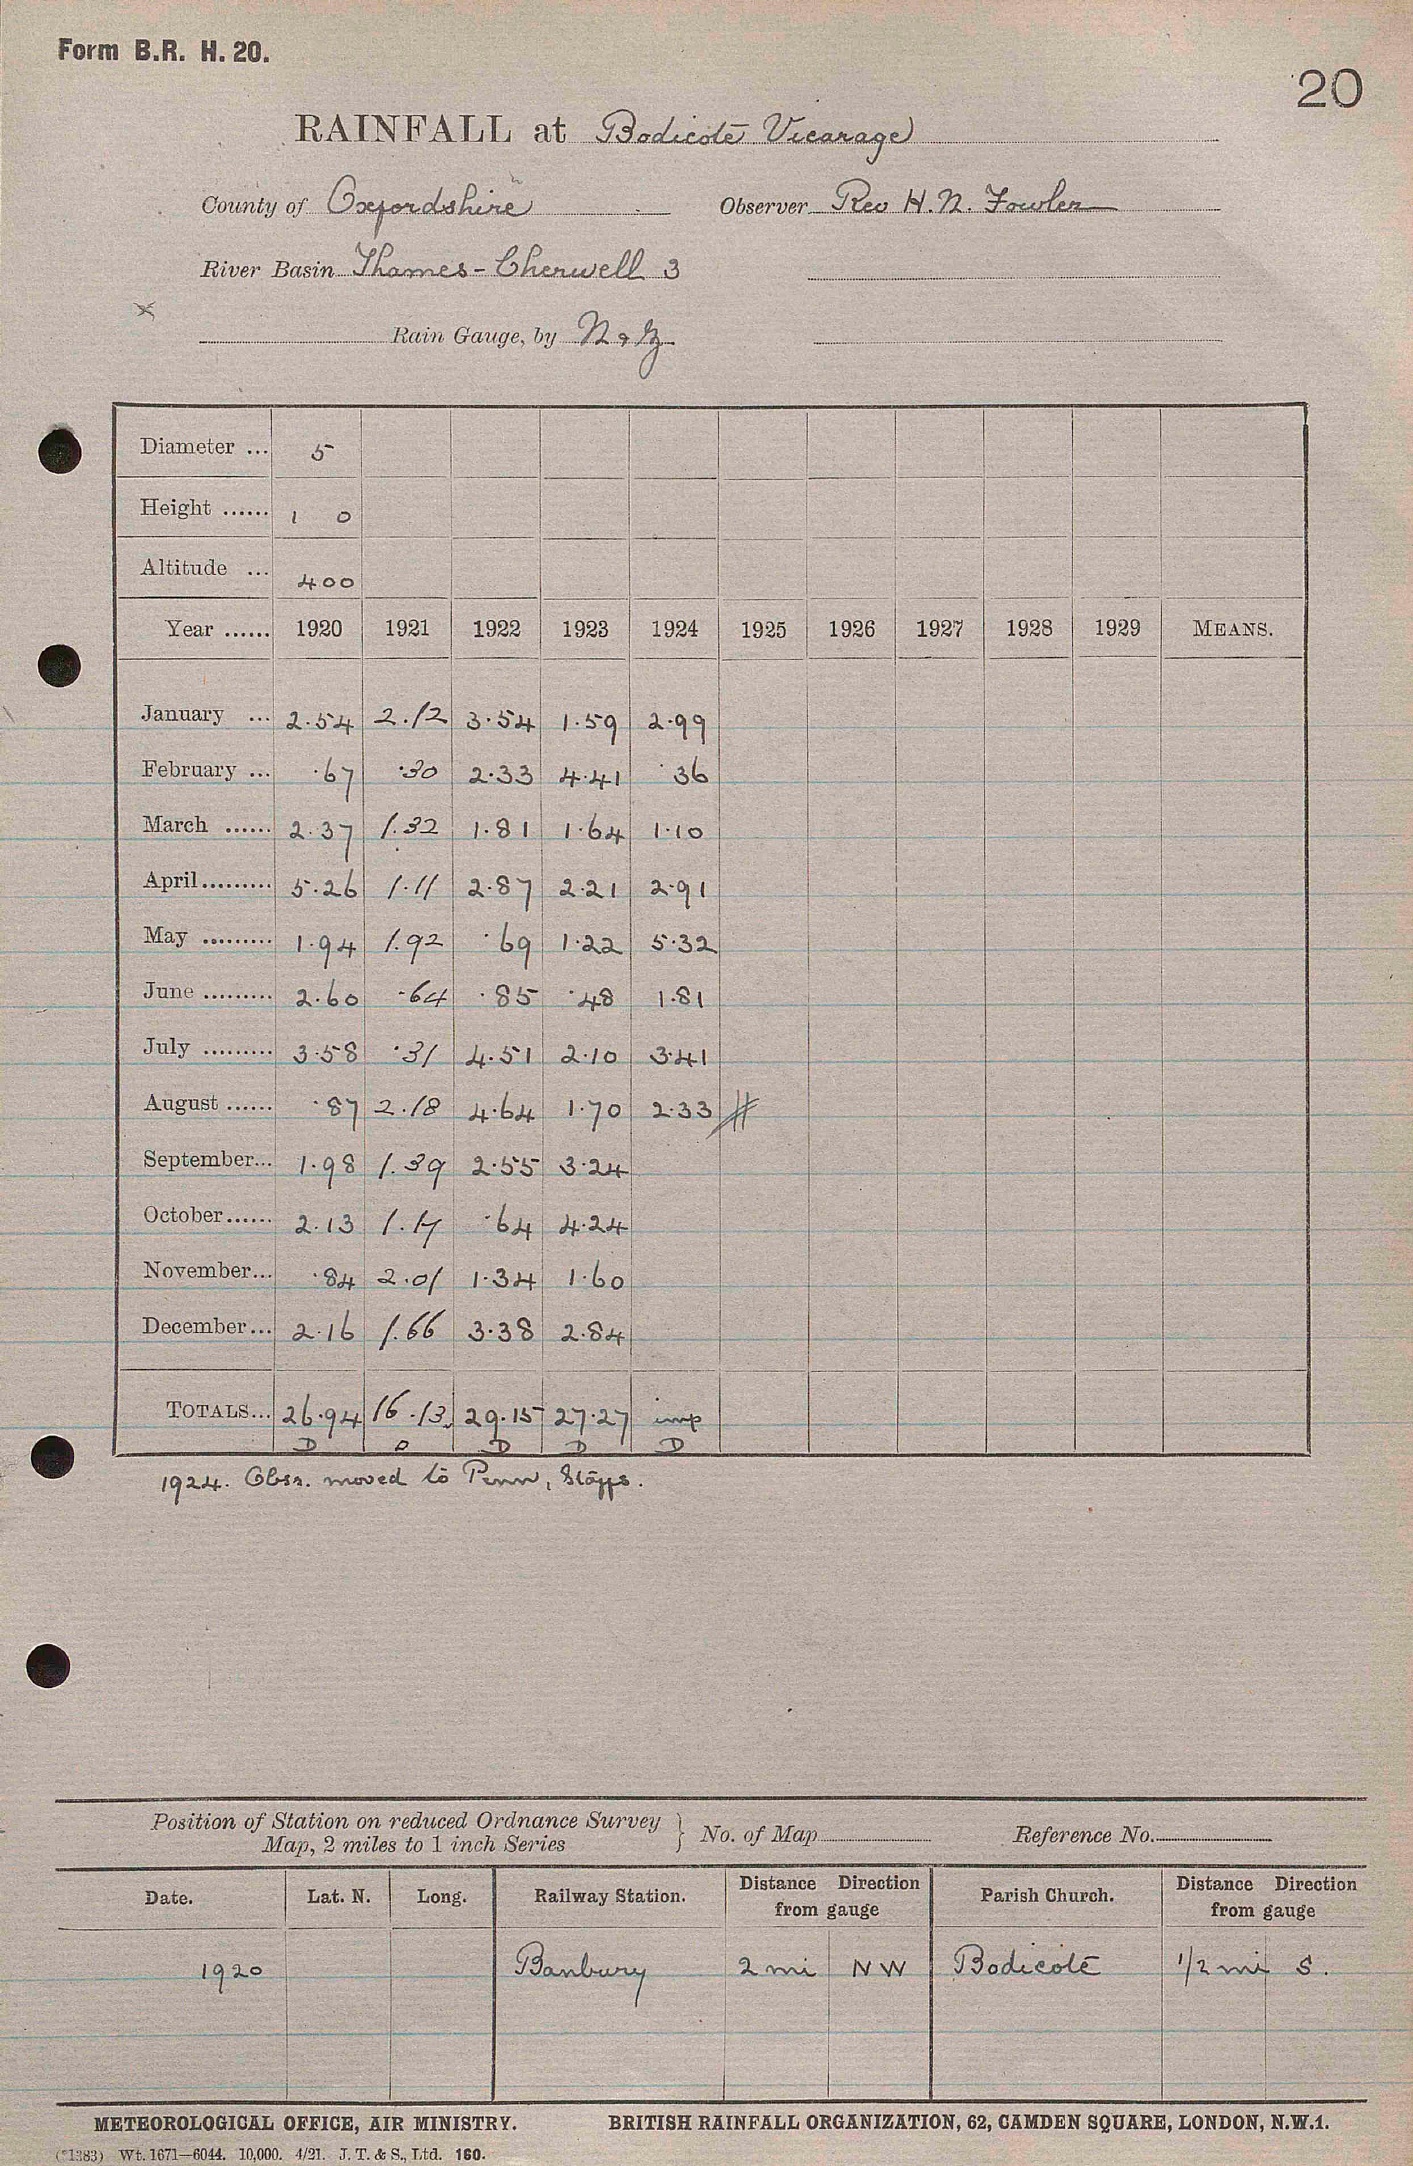 Form B.R. H. 20.
20
RAINFALL at Bodicote Vicarage
County of Oxfordshire Observer Rev H. N. Fowler
River Basin Thames - Cherwell 3
Rain Gauge, by N & Z
Diameter ... 5
Height ...... 1 0
Altitude ... 400
Year ...... 1920 1921 1922 1923 1924 1925 1926 1927 1928 1929 MEANS.
January ... 2.54 2.12 3.54 1.59 2.99
February ... .67 .30 2.33 4.41 .36
March ...... 2.37 1.32 1.81 1.64 1.10
April ......... 5.26 1.11 2.87 2.21 2.91
May ......... 1.94 1.92 .69 1.22 5.32
June ......... 2.60 .64 .85 .48 1.81
July ......... 3.58 .31 4.51 2.10 3.41
August ...... .87 2.18 4.64 1.70 2.33
September... 1.98 1.39 2.55 3.24
October...... 2.13 1.17 .64 4.24
November... .84 2.01 1.34 1.60
December... 2.16 1.66 3.38 2.84
TOTALS... 26.94 16.13 29.15 27.27 imp
D D D D D
1924. Obsr. moved to Penn, Staffs.
Position of Station on reduced Ordnance Survey
Map, 2 miles to 1 inch Series } No. of Map Reference No.
Date. Lat. N. Long. Railway Station. Distance Direction from gauge Parish Church. Distance Direction from gauge
1920 Banbury 2 mi NW Bodicote 1/2 mi S.
METEOROLOGICAL OFFICE, AIR MINISTRY. BRITISH RAINFALL ORGANIZATION, 62, CAMDEN SQUARE, LONDON, N.W.1.
(*1383) Wt. 1671—6044. 10,000. 4/21. J. T. & S., Ltd. 160.